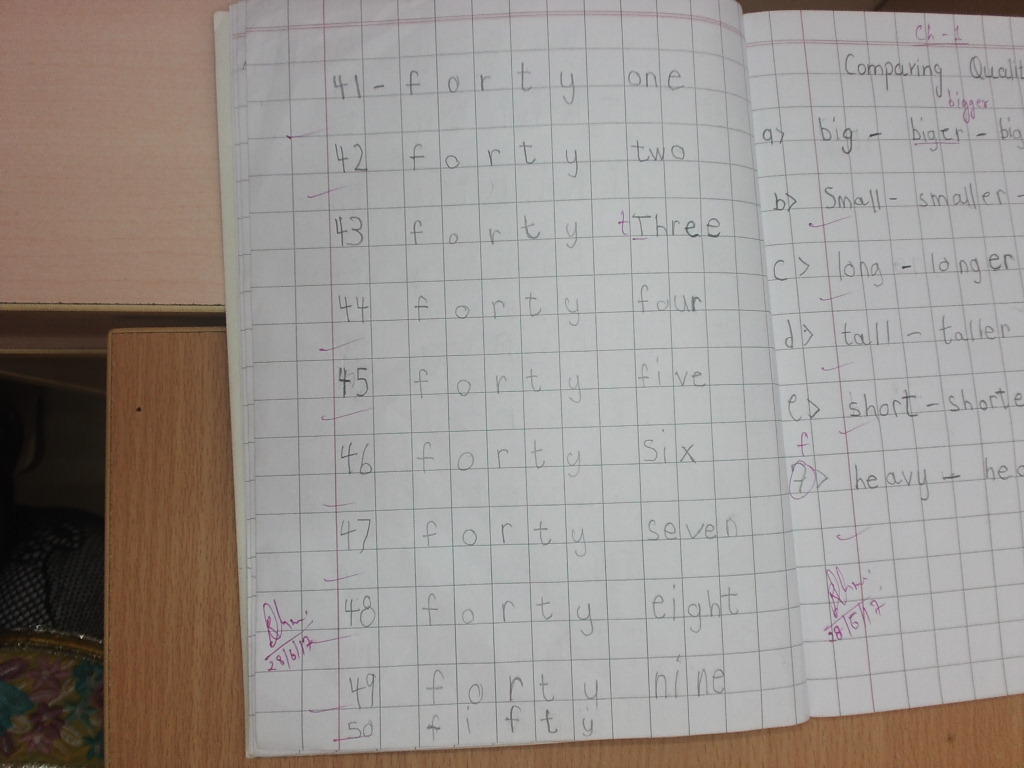 41 - forty one
42 forty two
43 forty tThree
44 forty four
45 forty five
46 forty six
47 forty seven
48 forty eight
49 forty nine
50 fifty
Ch - 1
Comparing
bigger
a) big - biger - big
b) Small - smaller -
c) long - longer
d) tall - taller
e) short - shorte
f
heavy - hea